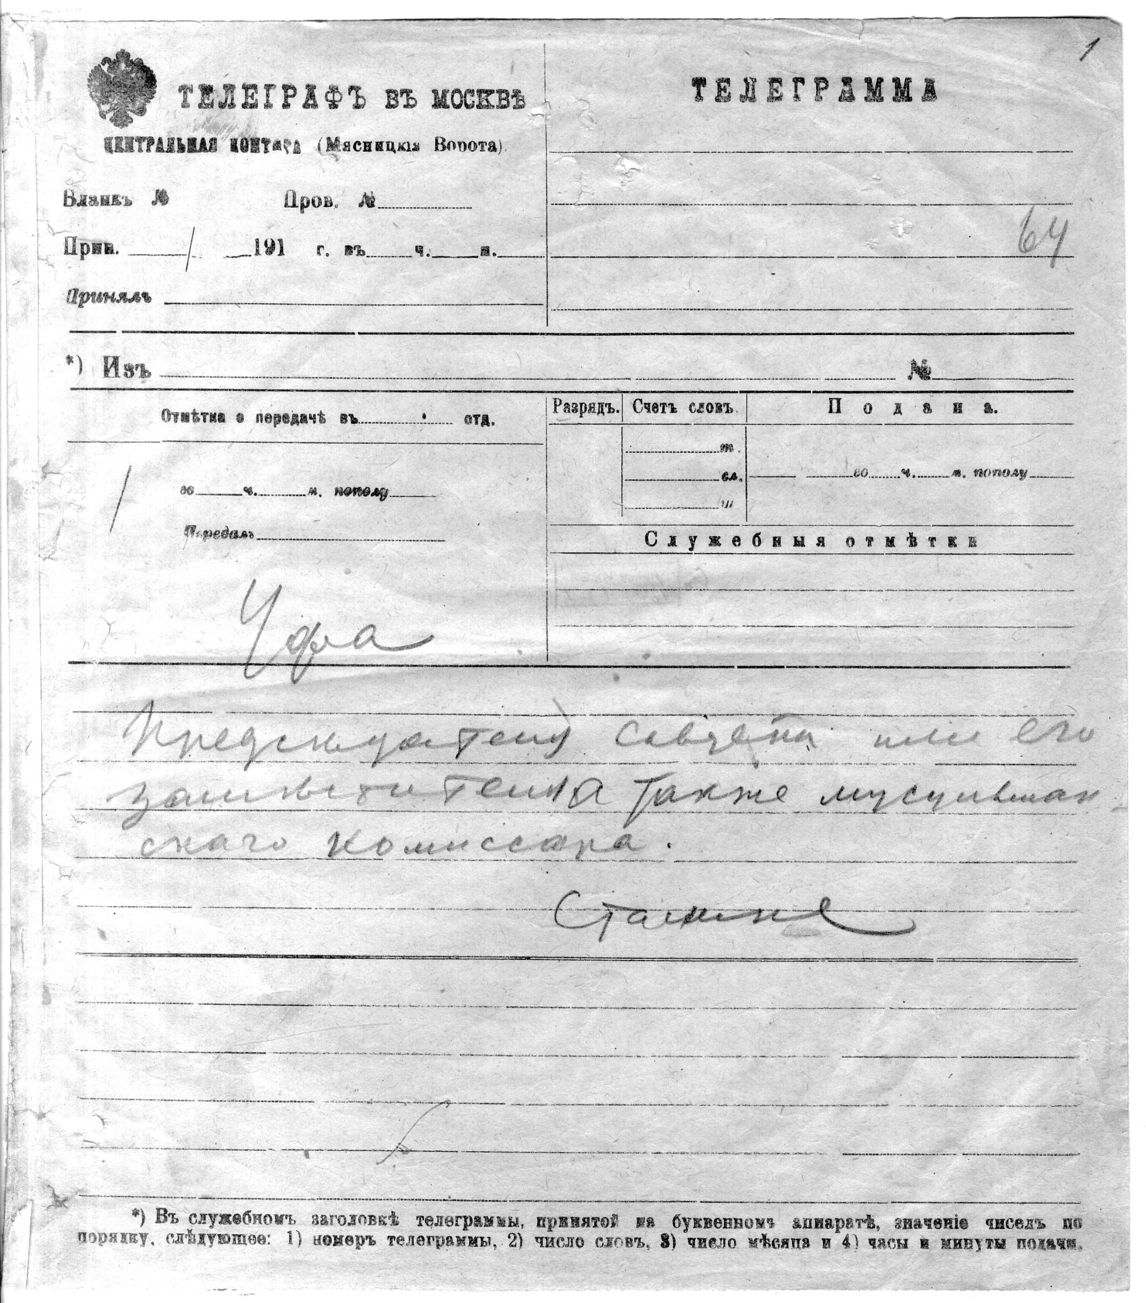 1
ТЕЛЕГРАФЪ ВЪ МОСКВѢ
ЦЕНТРАЛЬНАЯ КОНТОРА (Мясницкія Ворота).
Бланкъ № Пров. №
Прин. / 191 г. въ ч. м.
Принялъ
ТЕЛЕГРАММА
64
*) Изъ №
Отмѣтка о передачѣ въ отд.
го ч. м. пополу
Передалъ
Разрядъ. Счетъ словъ. Подана.
т.
сл.
ш
го ч. м. пополу
Служебныя отмѣтки
Уфа
Председателю Совдепа или его
заместителя а также мусульман-
скаго комиссара.
Сталине
*) Въ служебномъ заголовкѣ телеграммы, принятой на буквенномъ аппаратѣ, значеніе чиселъ по
порядку, слѣдующее: 1) номеръ телеграммы, 2) число словъ, 3) число мѣсяца и 4) часы и минуты подачи.